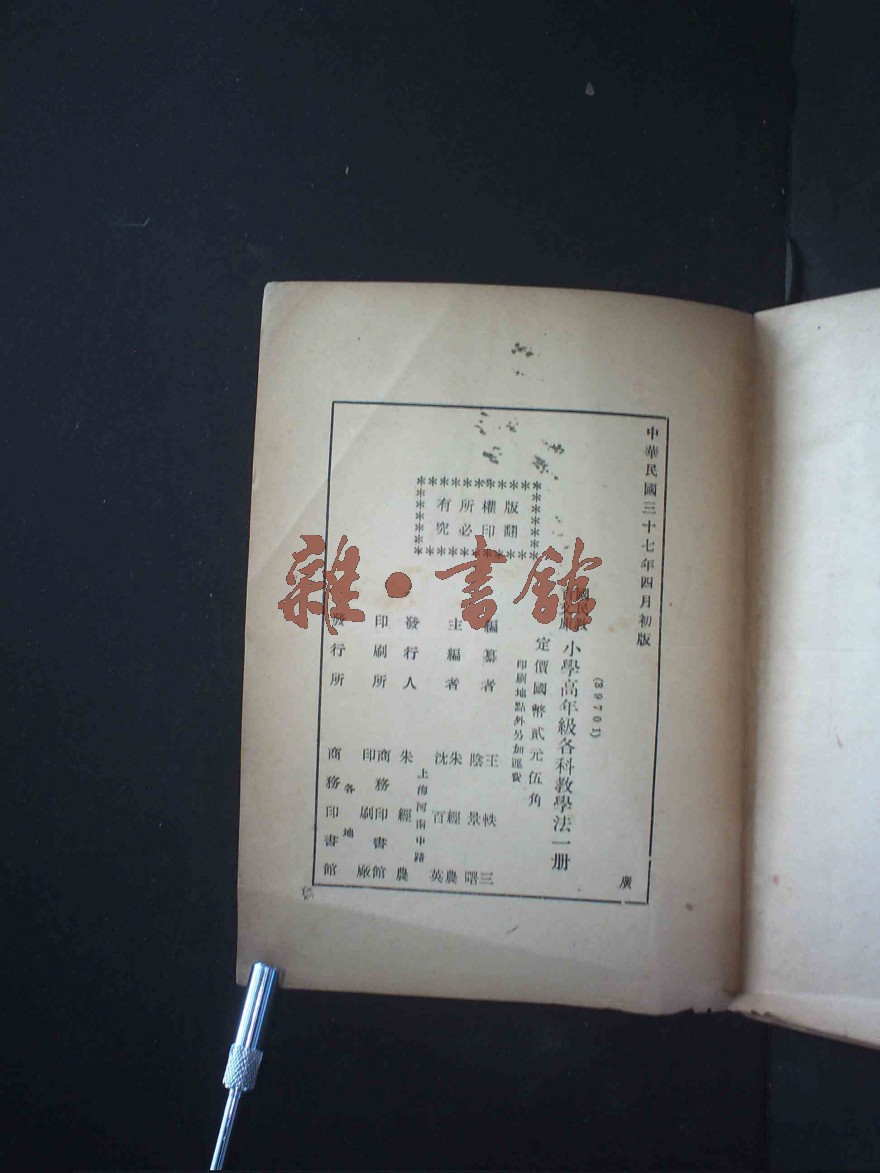 中華民國三十七年四月初版
廣
(39701)
國民教育文庫
小學高年級各科教學法一册
定價國幣貳元伍角
印刷地點外另加運費
版權所有
翻印必究
編纂者 王軼三 陰景曙
主編者 朱經農 沈百英
上海河南中路
發行人 朱經農
印刷所 商務印書館印刷廠
各地
發行所 商務印書館
雜·書館